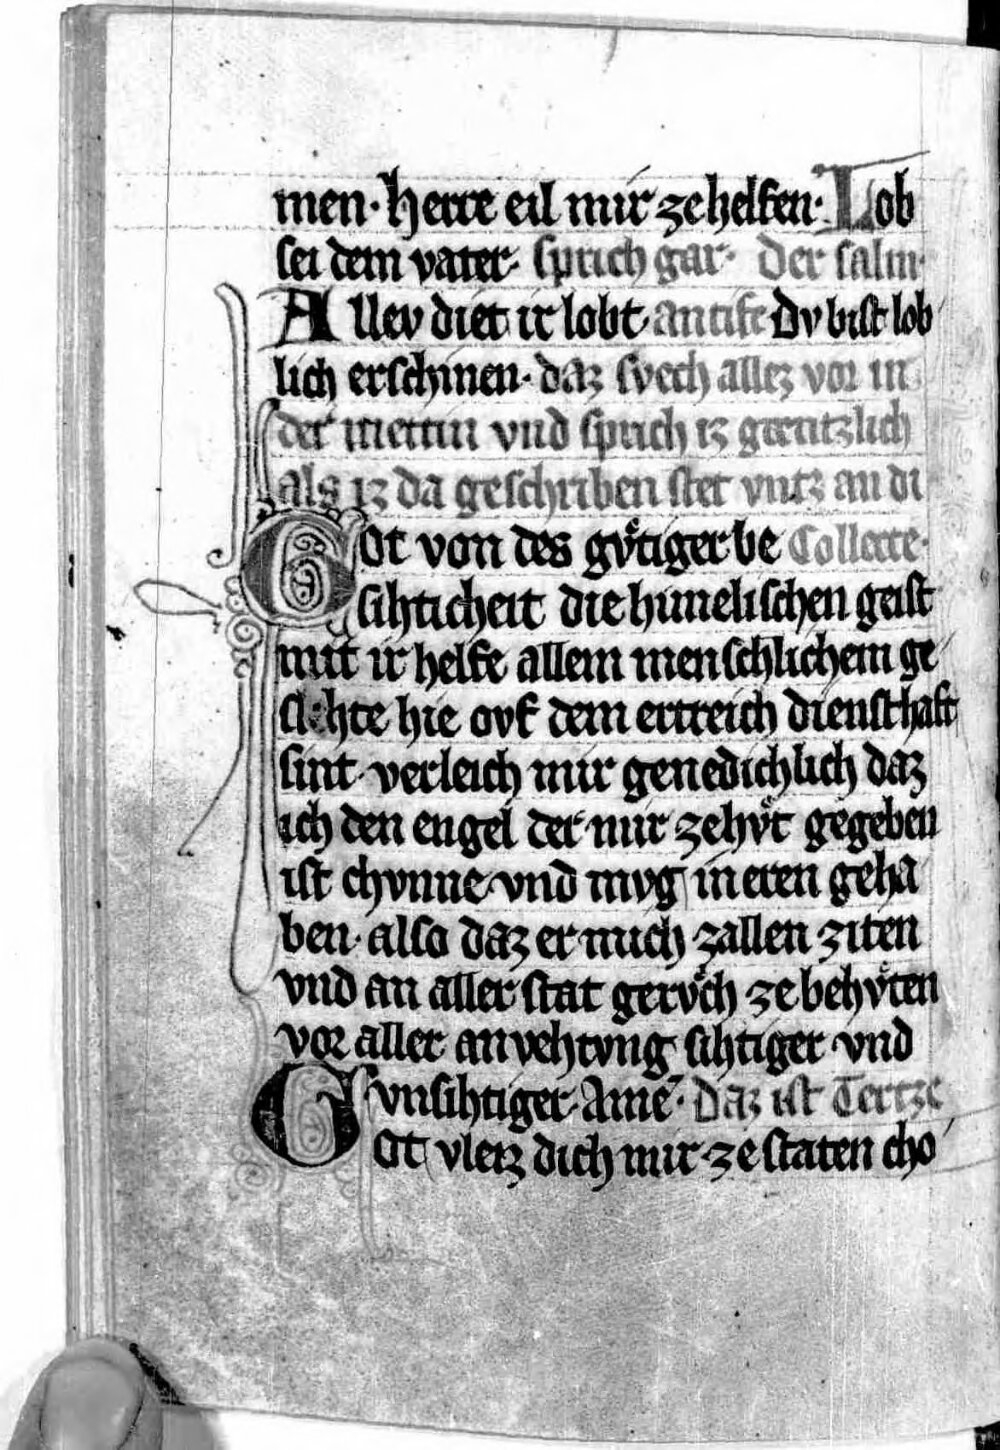 men· herre eil mir ze helfen· Lob
sei dem vater· sprich gar· Der salm·
Allev diet ir lobt· antife Dv bist lob
lich erschinen· daz svech allez vor in
der mettin vnd sprich iz gæntzlich
als iz da geschriben stet vntz an di
Got von des gvͤtiger be Collecte·
sihticheit die himelischen geist
mit ir helfe allem menschlichem ge
slehte hie ovf dem ertreich diensthaft
sint· verleich mir genedichlich daz
ich den engel der mir ze hvͤt gegeben
ist chvnne vnd mvg in eren geha
ben· also daz er mich zallen ziten
vnd an aller stat gervͦch ze behvͤten
vor aller anvehtvng sihtiger vnd
vnsihtiger· Amē· Daz ist Tertze
Got vleiz dich mir ze staten cho